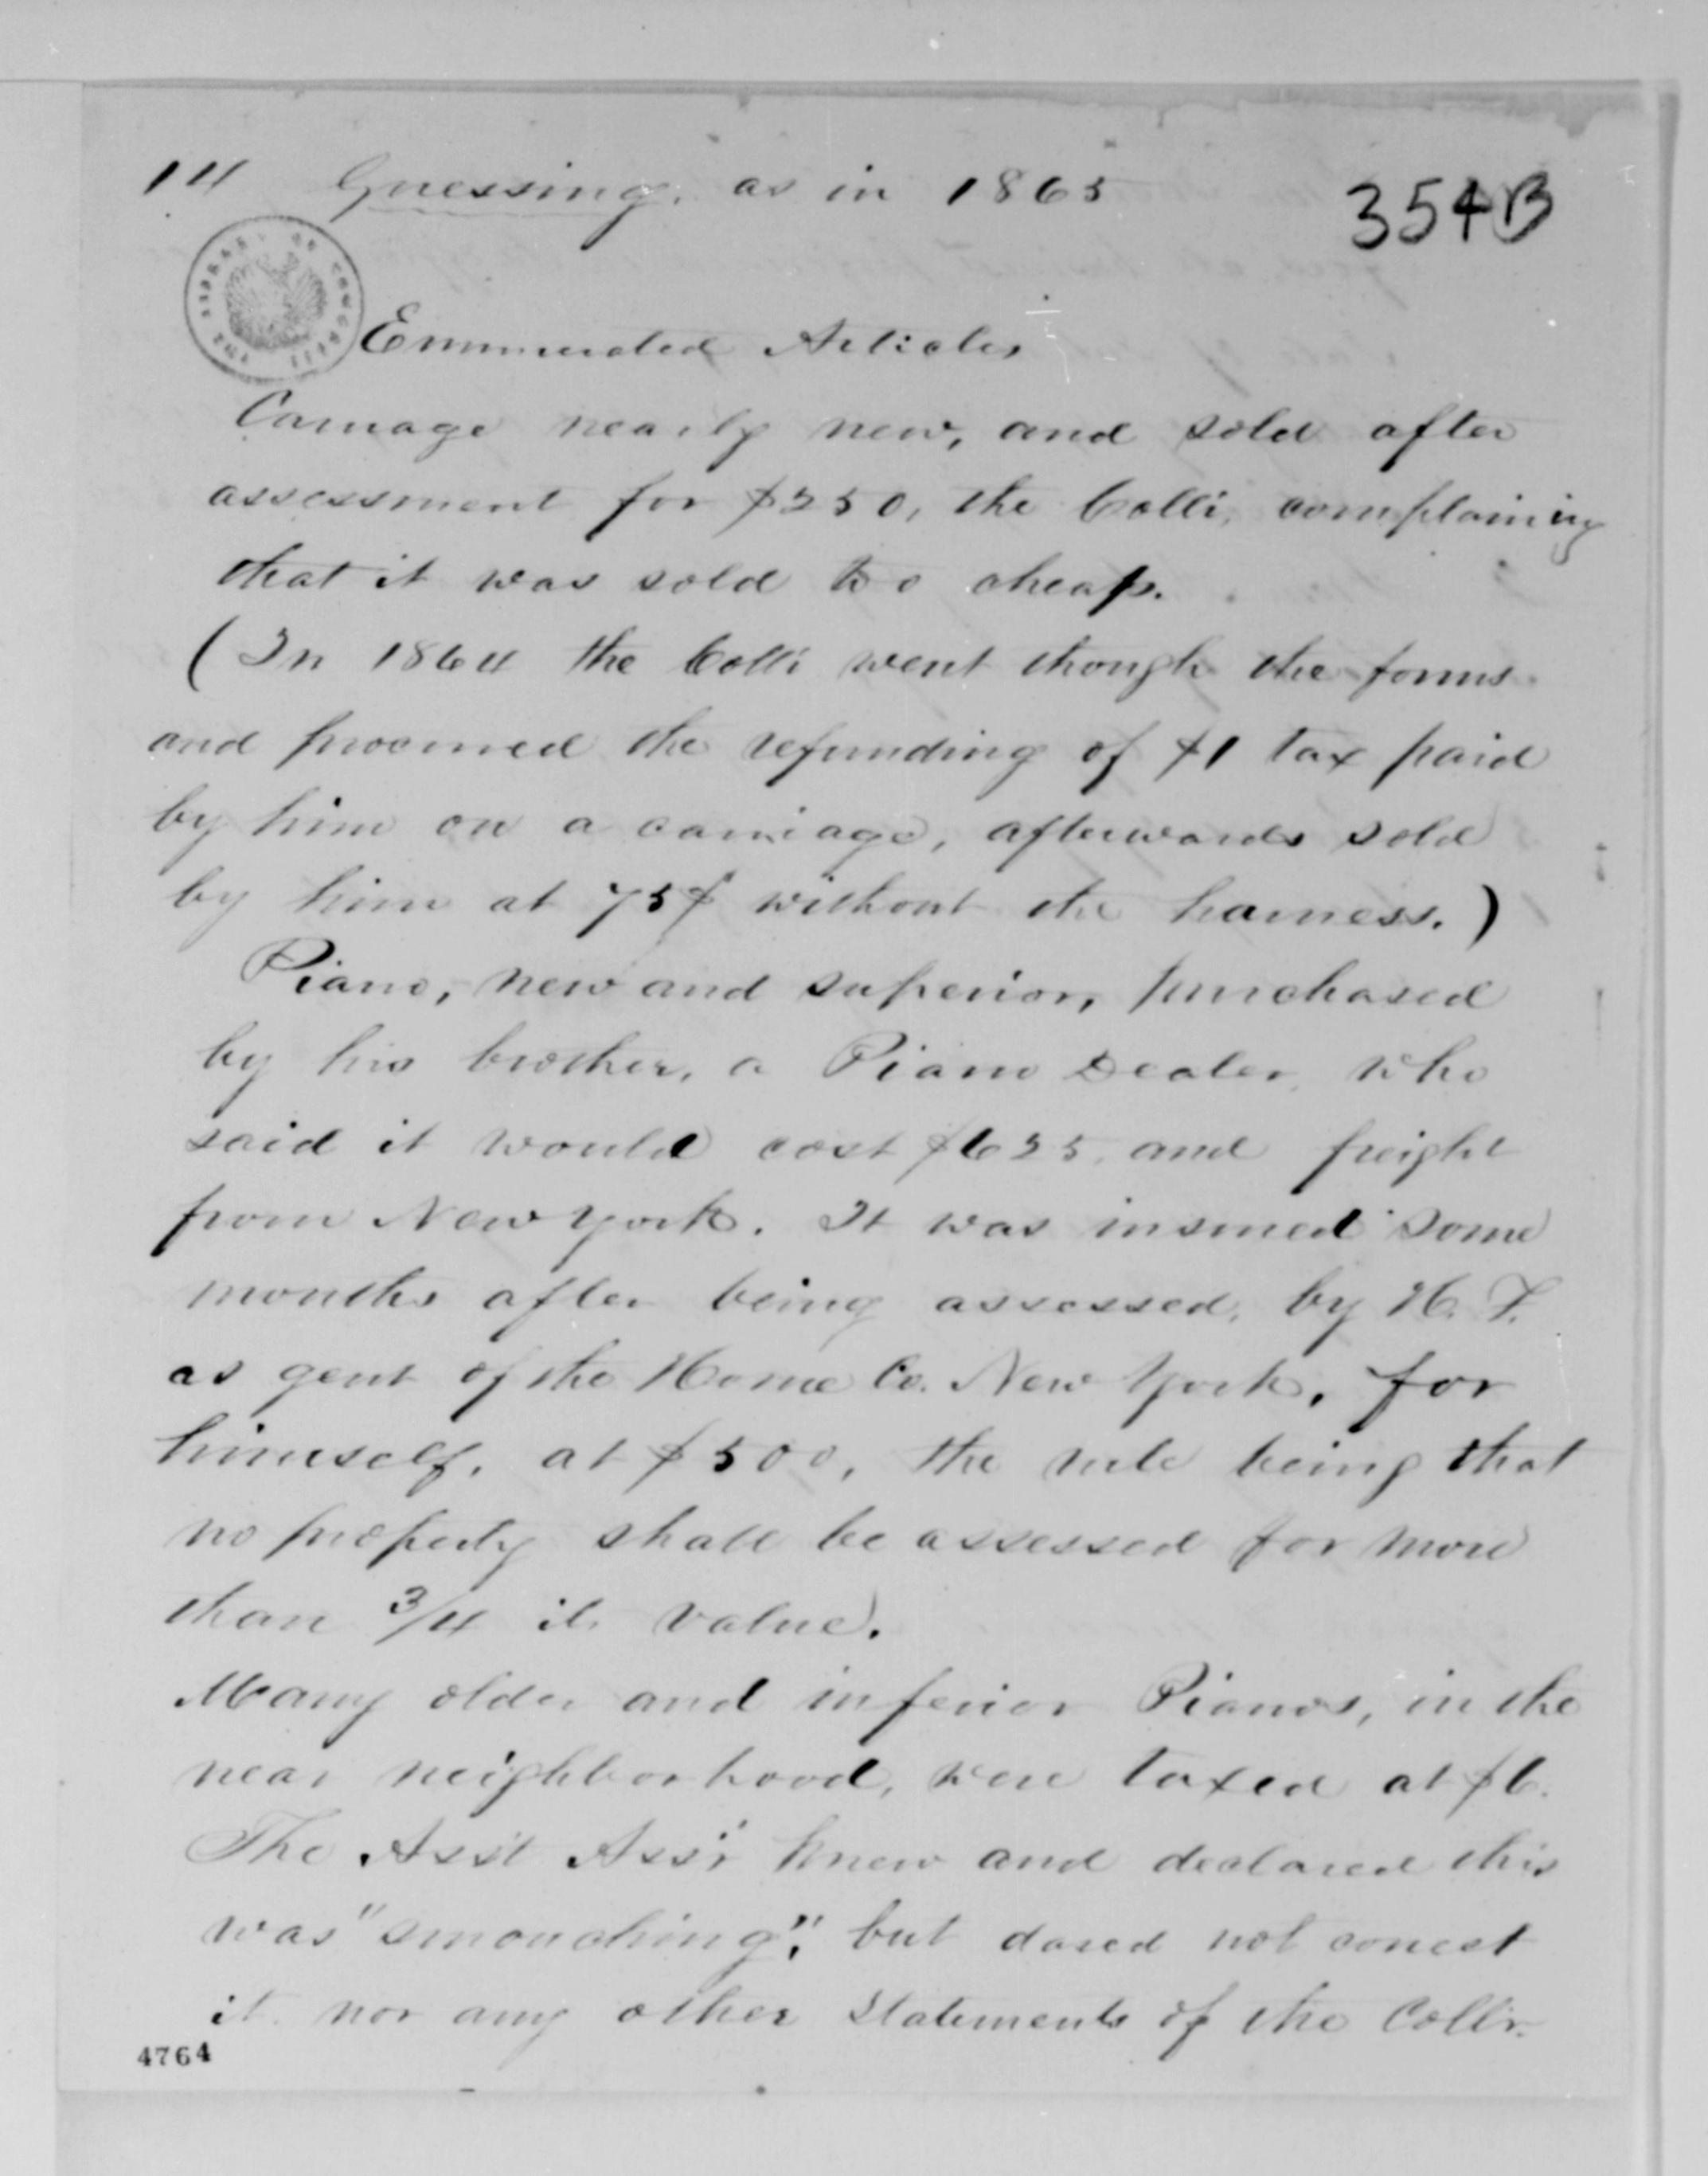 14 Guessing, as in 1865
354B
THE LIBRARY OF CONGRESS
Enumerated Articles
Carriage nearly new, and sold after
assessment for $250, the Collr, complaining
that it was sold too cheap.
(In 1864 the Collr went though the forms
and procured the refunding of $1 tax paid
by him on a carriage, afterwards sold
by him at 75$ without the harness.)
Piano, new and superior, purchased
by his brother, a Piano Dealer, who
said it would cost $625, and freight
from New York. It was insured some
months after being assessed, by H. F.
as gent of the Home Co. New York, for
himself, at $500, the rule being that
no property shall be assessed for more
than 3/4 its value.
Many older and inferior Pianos, in the
near neighborhood, were taxed at $6.
The Asst Assr knew and declared this
was "smouching", but dared not correct
it nor any other statements of the Collr.
4764